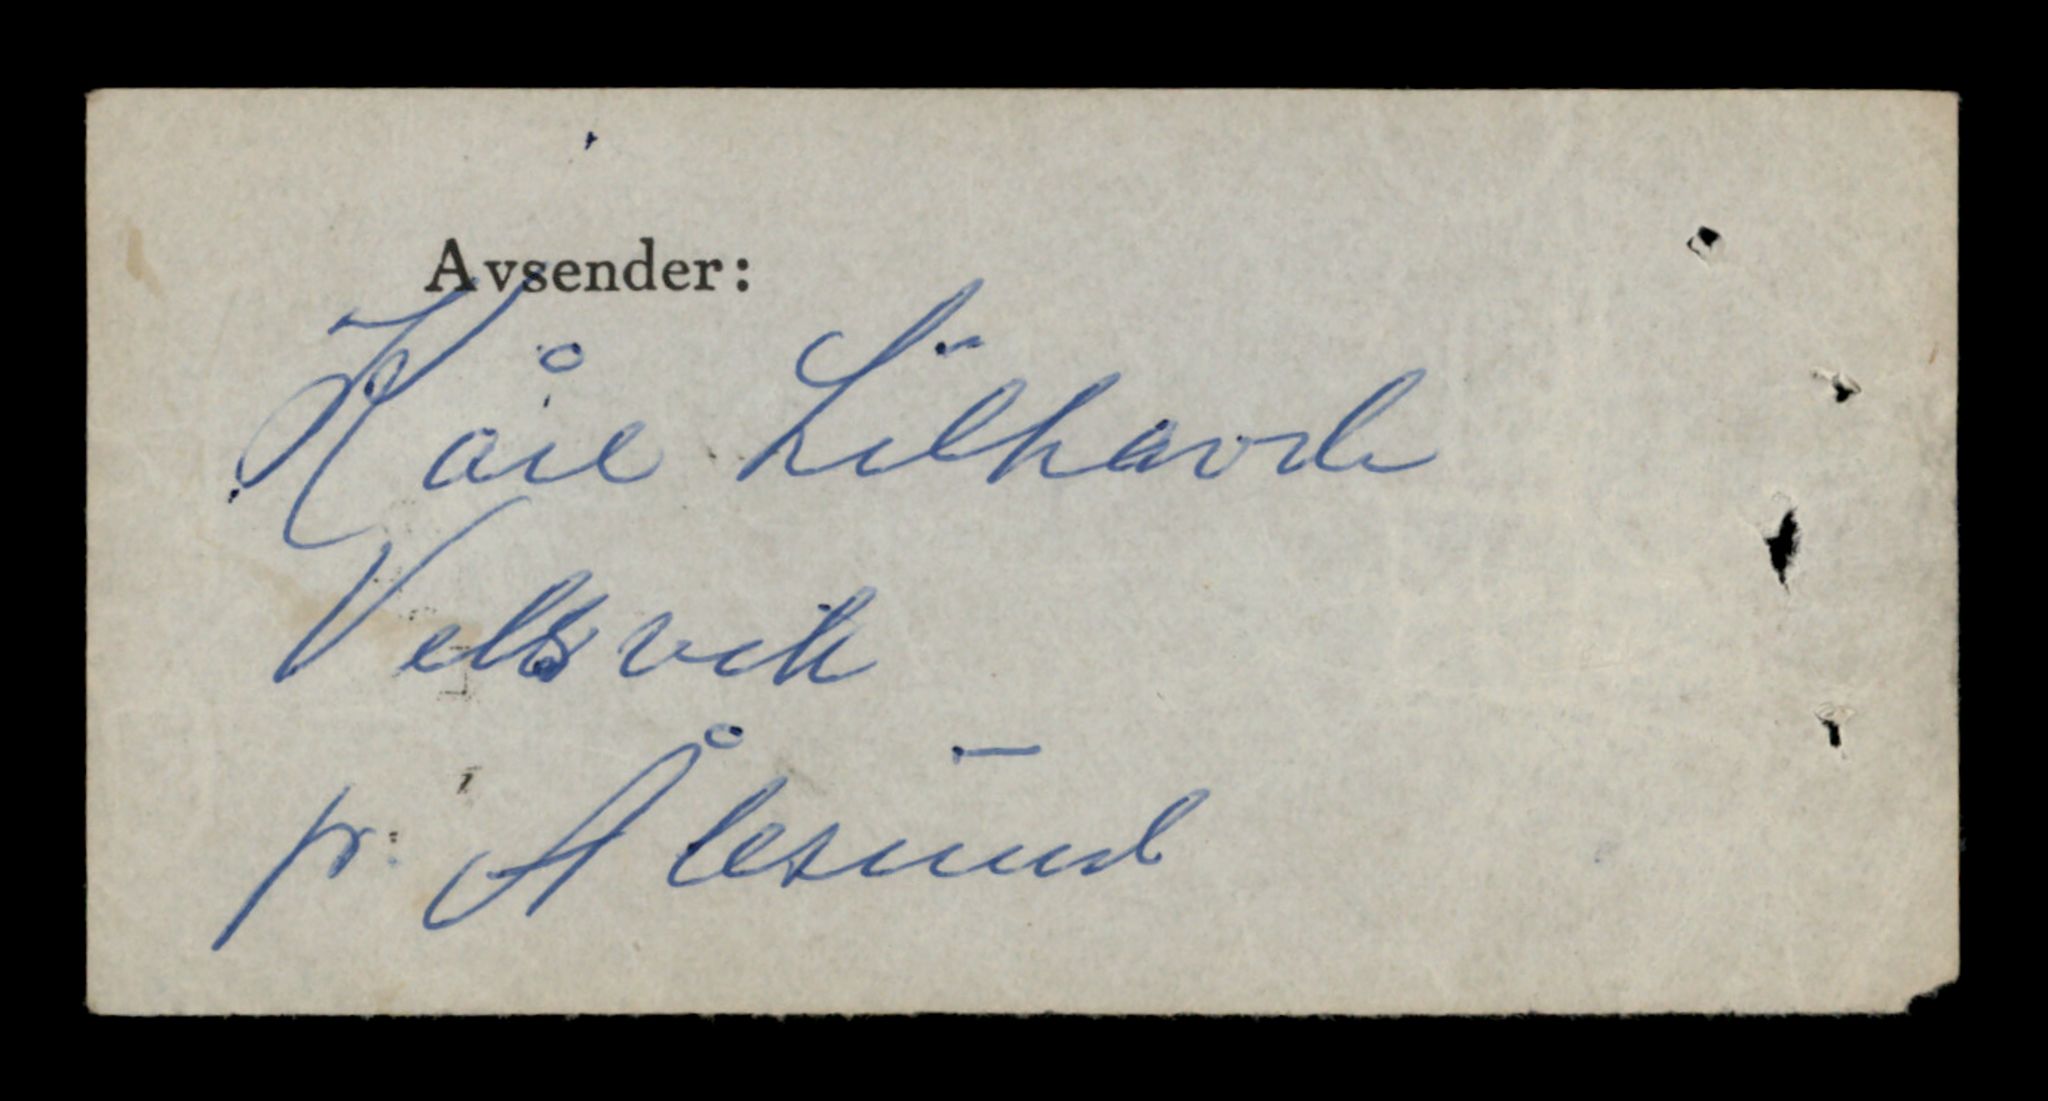 Avsender:
Kåre Lillhavde
Vellsvik
pr. Ålesund